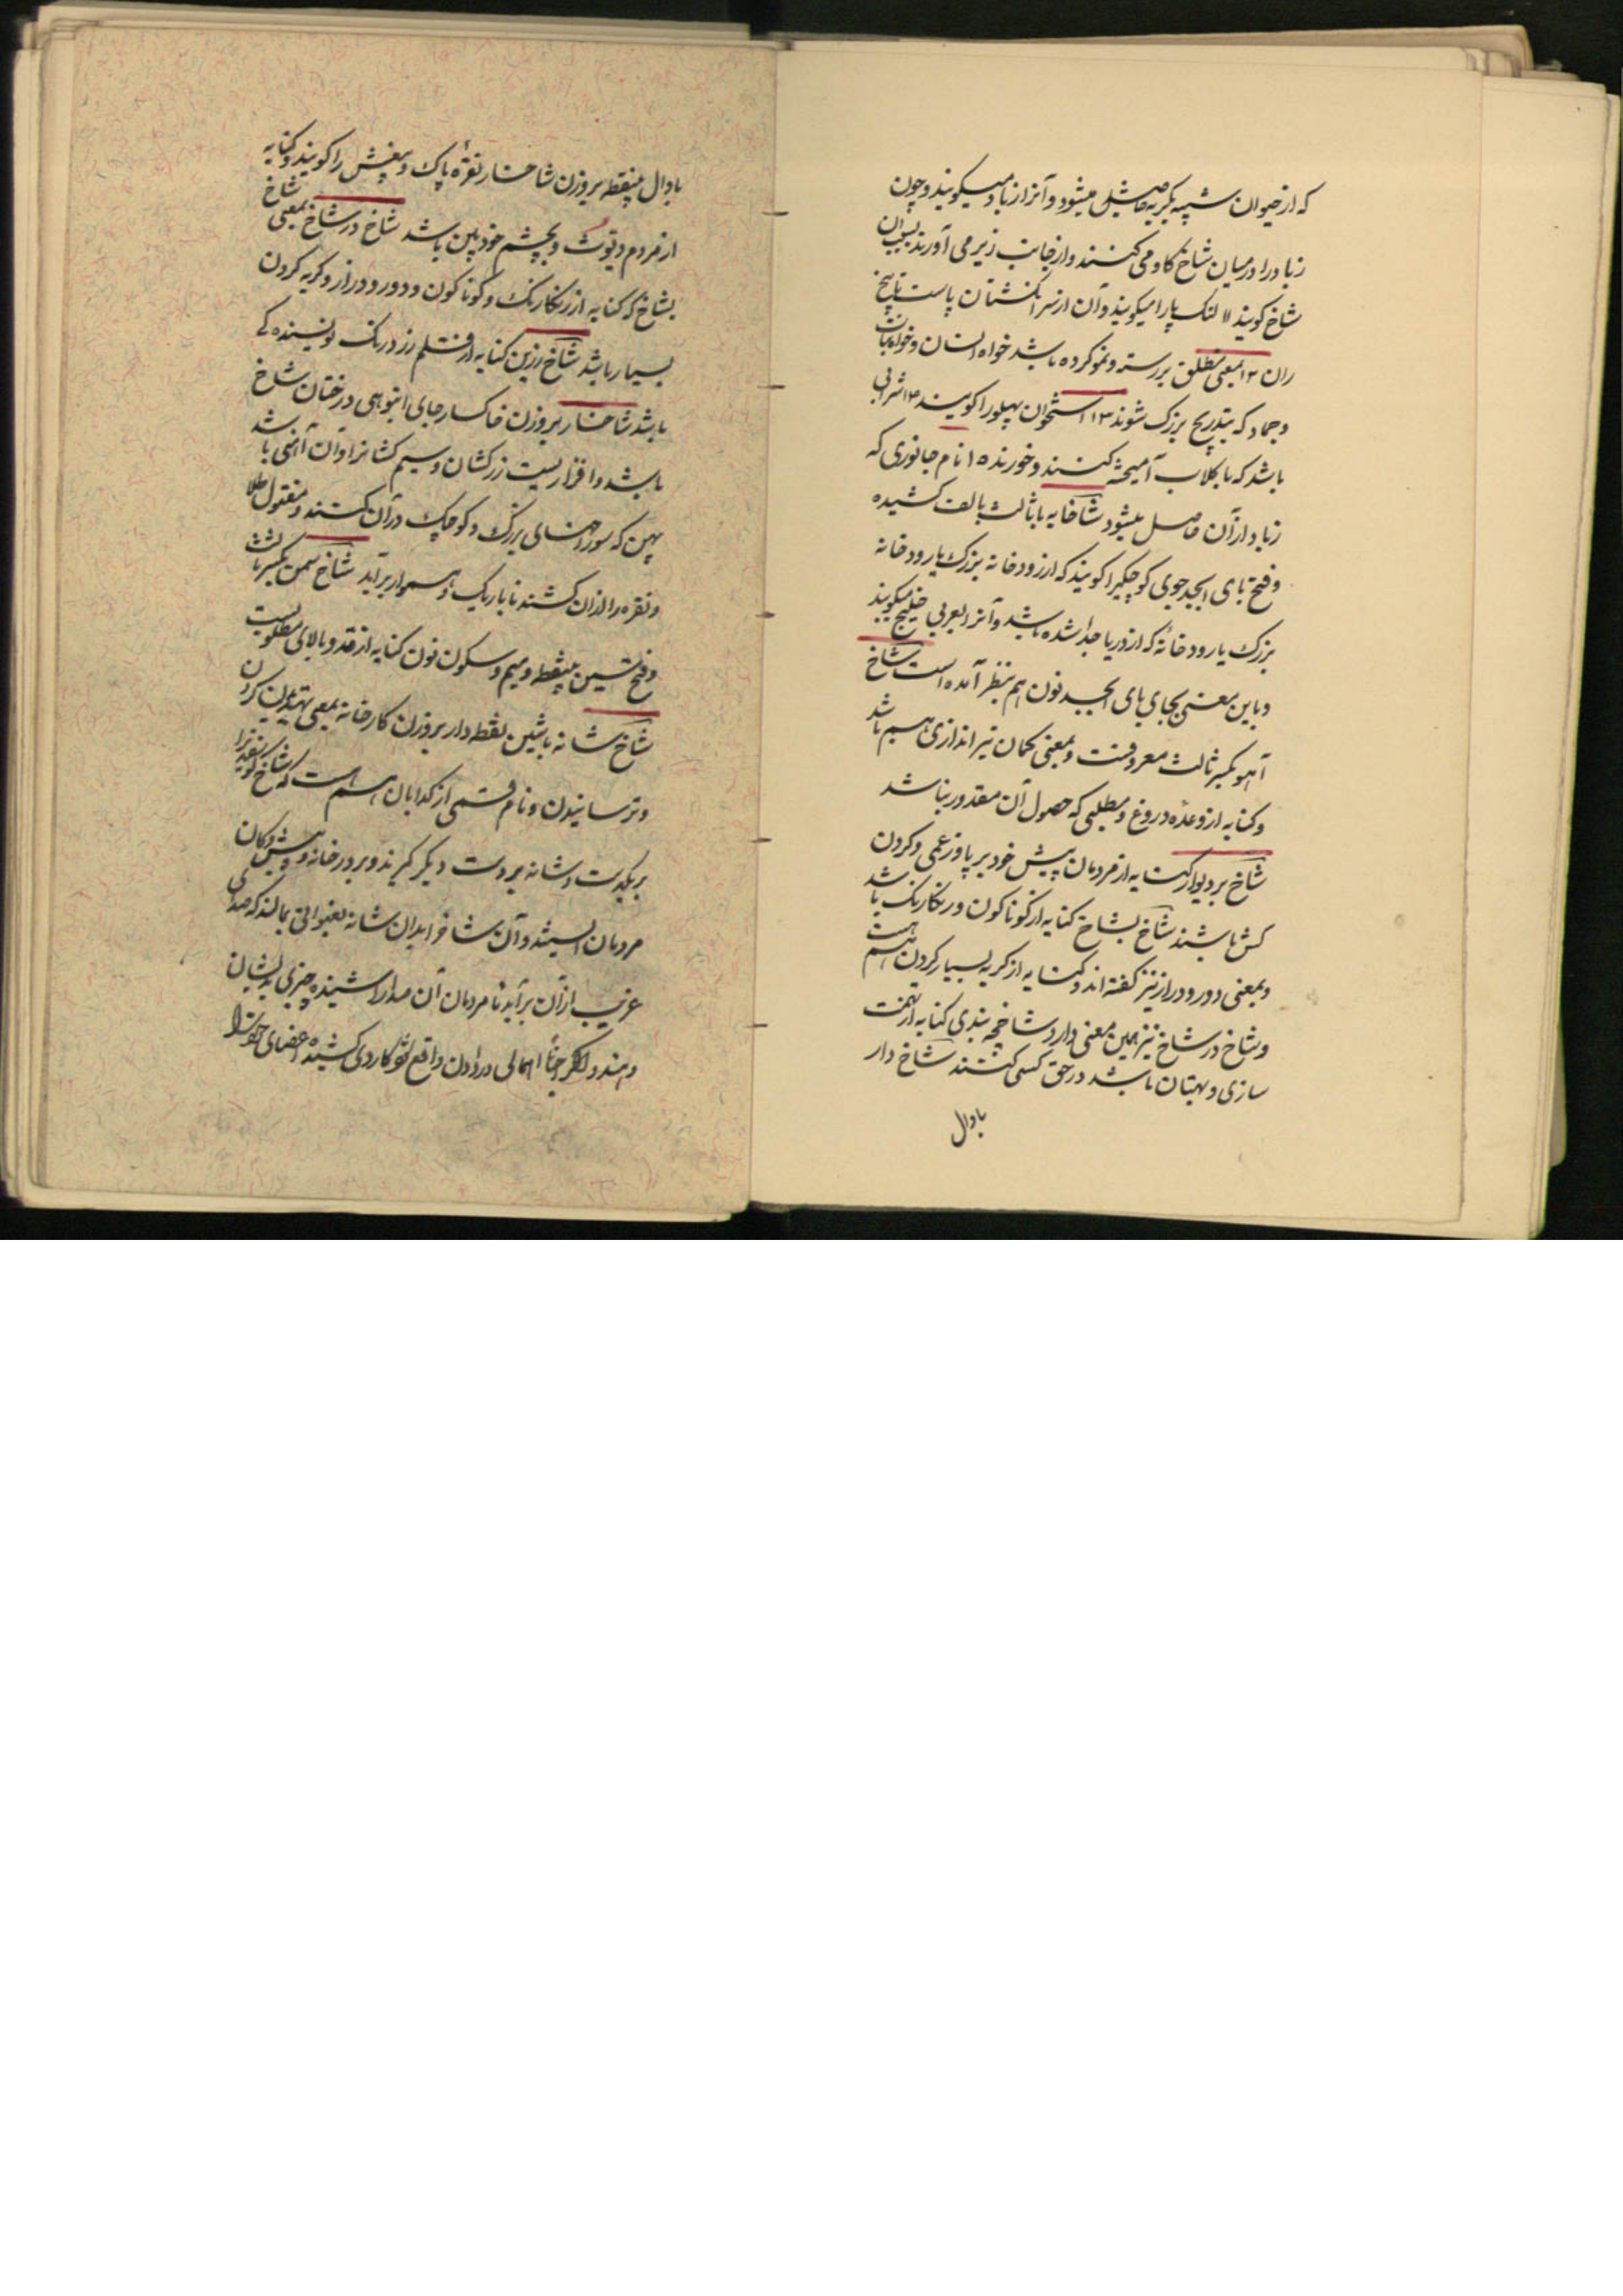 که از حیوان شبیه بگربه حاصل میشود و آنرا زباد میگویند و چون
زباد را در میان شاخ گاو می کنند و از جانب زیر می آورند بسبب آن
شاخ گویند ۱۱ لنک پا را میگویند و آن از سر انگشتان پاست تا بیخ
ران ۱۲ بمعنی مطلق بر رسته و نمو کرده باشد خواه انسان و خواه نبات
و جماد که بتدریج بزرک شوند ۱۳ استخوان پهلو را گویند ۱۴ شرابی
باشد که با گلاب آمیخته کنند و خورند ۱۵ نام جانوری که
زباد از آن حاصل میشود شاخابه با ثالث بالف کشیده
و فتح بای ابجد جوی کوچکیرا گویند که از رودخانه بزرک یا رودخانه
بزرک یا رودخانهٔ که از دریا جدا شده باشد و آنرا بعربی خلیج میگویند
و باین معنی بجای بای ابجد نون هم بنظر آمده است شاخ
آهو بکسر ثالث معروفست و بمعنی کمان تیراندازی هم باشد
و کنایه از وعدهٔ دروغ و مطلبی که حصول آن مقدور نباشد
شاخ بر دیوار کنایه از مردمان پیش خود بر پا و زعمی و گردن
کش باشند شاخ بشاخ کنایه از گوناگون و رنکارنک باشد
و بمعنی دور و دراز نیز گفته اند و کنایه از گریه بسیار کردن هم هست
و شاخ در شاخ نیز همین معنی دارد شاخچه بندی کنایه از تهمت
سازی و بهتان باشد در حق کسی کنند شاخ دار
بادال
بادال بینقطه بر وزن شاخسار نقرهٔ پاک و بیغش را گویند و کنایه
از مردم دیوث و بچشم خود بین باشد شاخ در شاخ بمعنی شاخ
بشاخ که کنایه از رنکارنک و گوناگون و دور و دراز و گریه کردن
بسیار باشد شاخ زرین کنایه از قلم زر درنک نویسنده کی
باشد شاخسار بر وزن خاکسار جای انبوهی درختان شاخ
باشد و افزاریست زرکشان و سیم کشانرا و آن آهنی باشد
پهن که سوراخهای بزرک و کوچک در آن کنند و مفتول طلا
و نقره را از آن کشند تا باریک و هموار برآید شاخ سمن بکسر ثالث
و فتح سین بینقطه و میم و سکون نون کنایه از قد و بالای مطلوبست
شاخ شانه باشین نقطه دار بر وزن کارخانه بمعنی تهدید کردن
و ترسانیدن و نام قسمی از گدایان هم هست که شاخ گوسفندیرا
بر یکدست و شانه بر دست دیگر گیرند و بر در خانه و پیش دکان
مردمان ایستند و آن شاخ را بدان شانه بعنوانی بمالند که صدای
غریب از آن برآید تا مردمان آن صدا را شنیده چیزی بدیشان
دهند و اگر احیاناً اهمالی در دادن واقع شود کاردی کشیده اعضای خود را